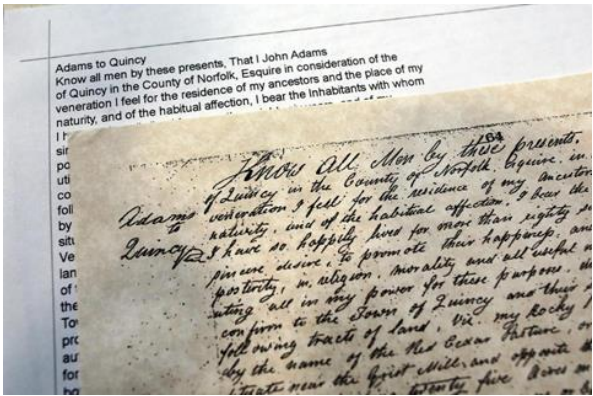 Adams to Quincy
Know all men by these presents, That I John Adams
of Quincy in the County of Norfolk, Esquire in consideration of the
veneration I feel for the residence of my ancestors and the place of my
naturity, and of the habitual affection, I bear the Inhabitants with whom
I h
sin
po
uti
co
foll
by
situ
Ve
lan
of
the
To
pro
au
for
164
Know All Men by these presents,
of Quincy in the County of Norfolk, Esquire, in
Adams to Quincy
veneration I fell for the residence of my ancestors
naturity, and of the habitual affection, I bear the
I have so happily lived for more than eighty
sincere, desire, to promote their happiness, and
posterity, in, religion, morality and all useful
uting all in my power for these purposes, do
confirm to the Town of Quincy and their
following tracts of land, Viz. my Rocky
by the name of the Red Cedar Pasture, or
situate near the Grist Mill, and opposite the
twenty five Acres